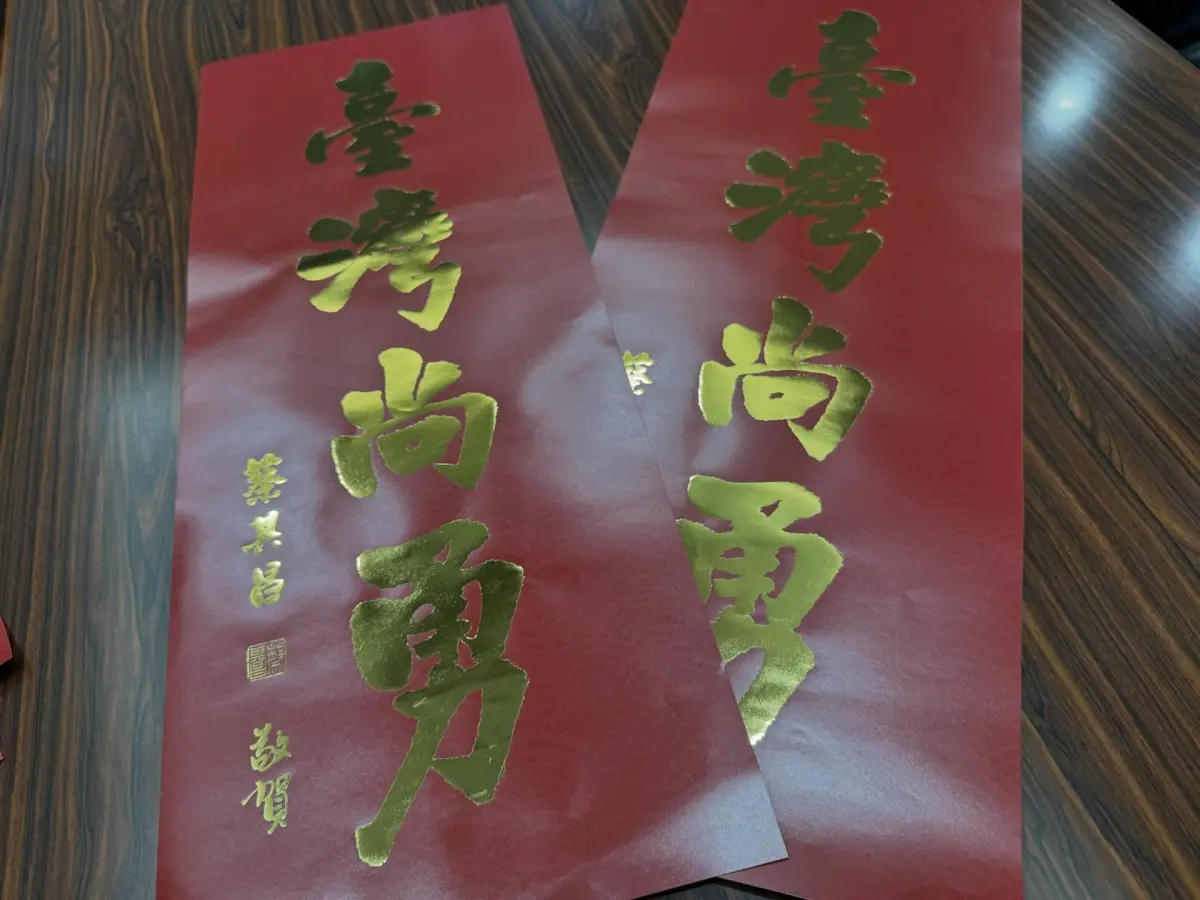 臺灣尚勇
蔡其昌
敬賀
臺灣尚勇
蔡